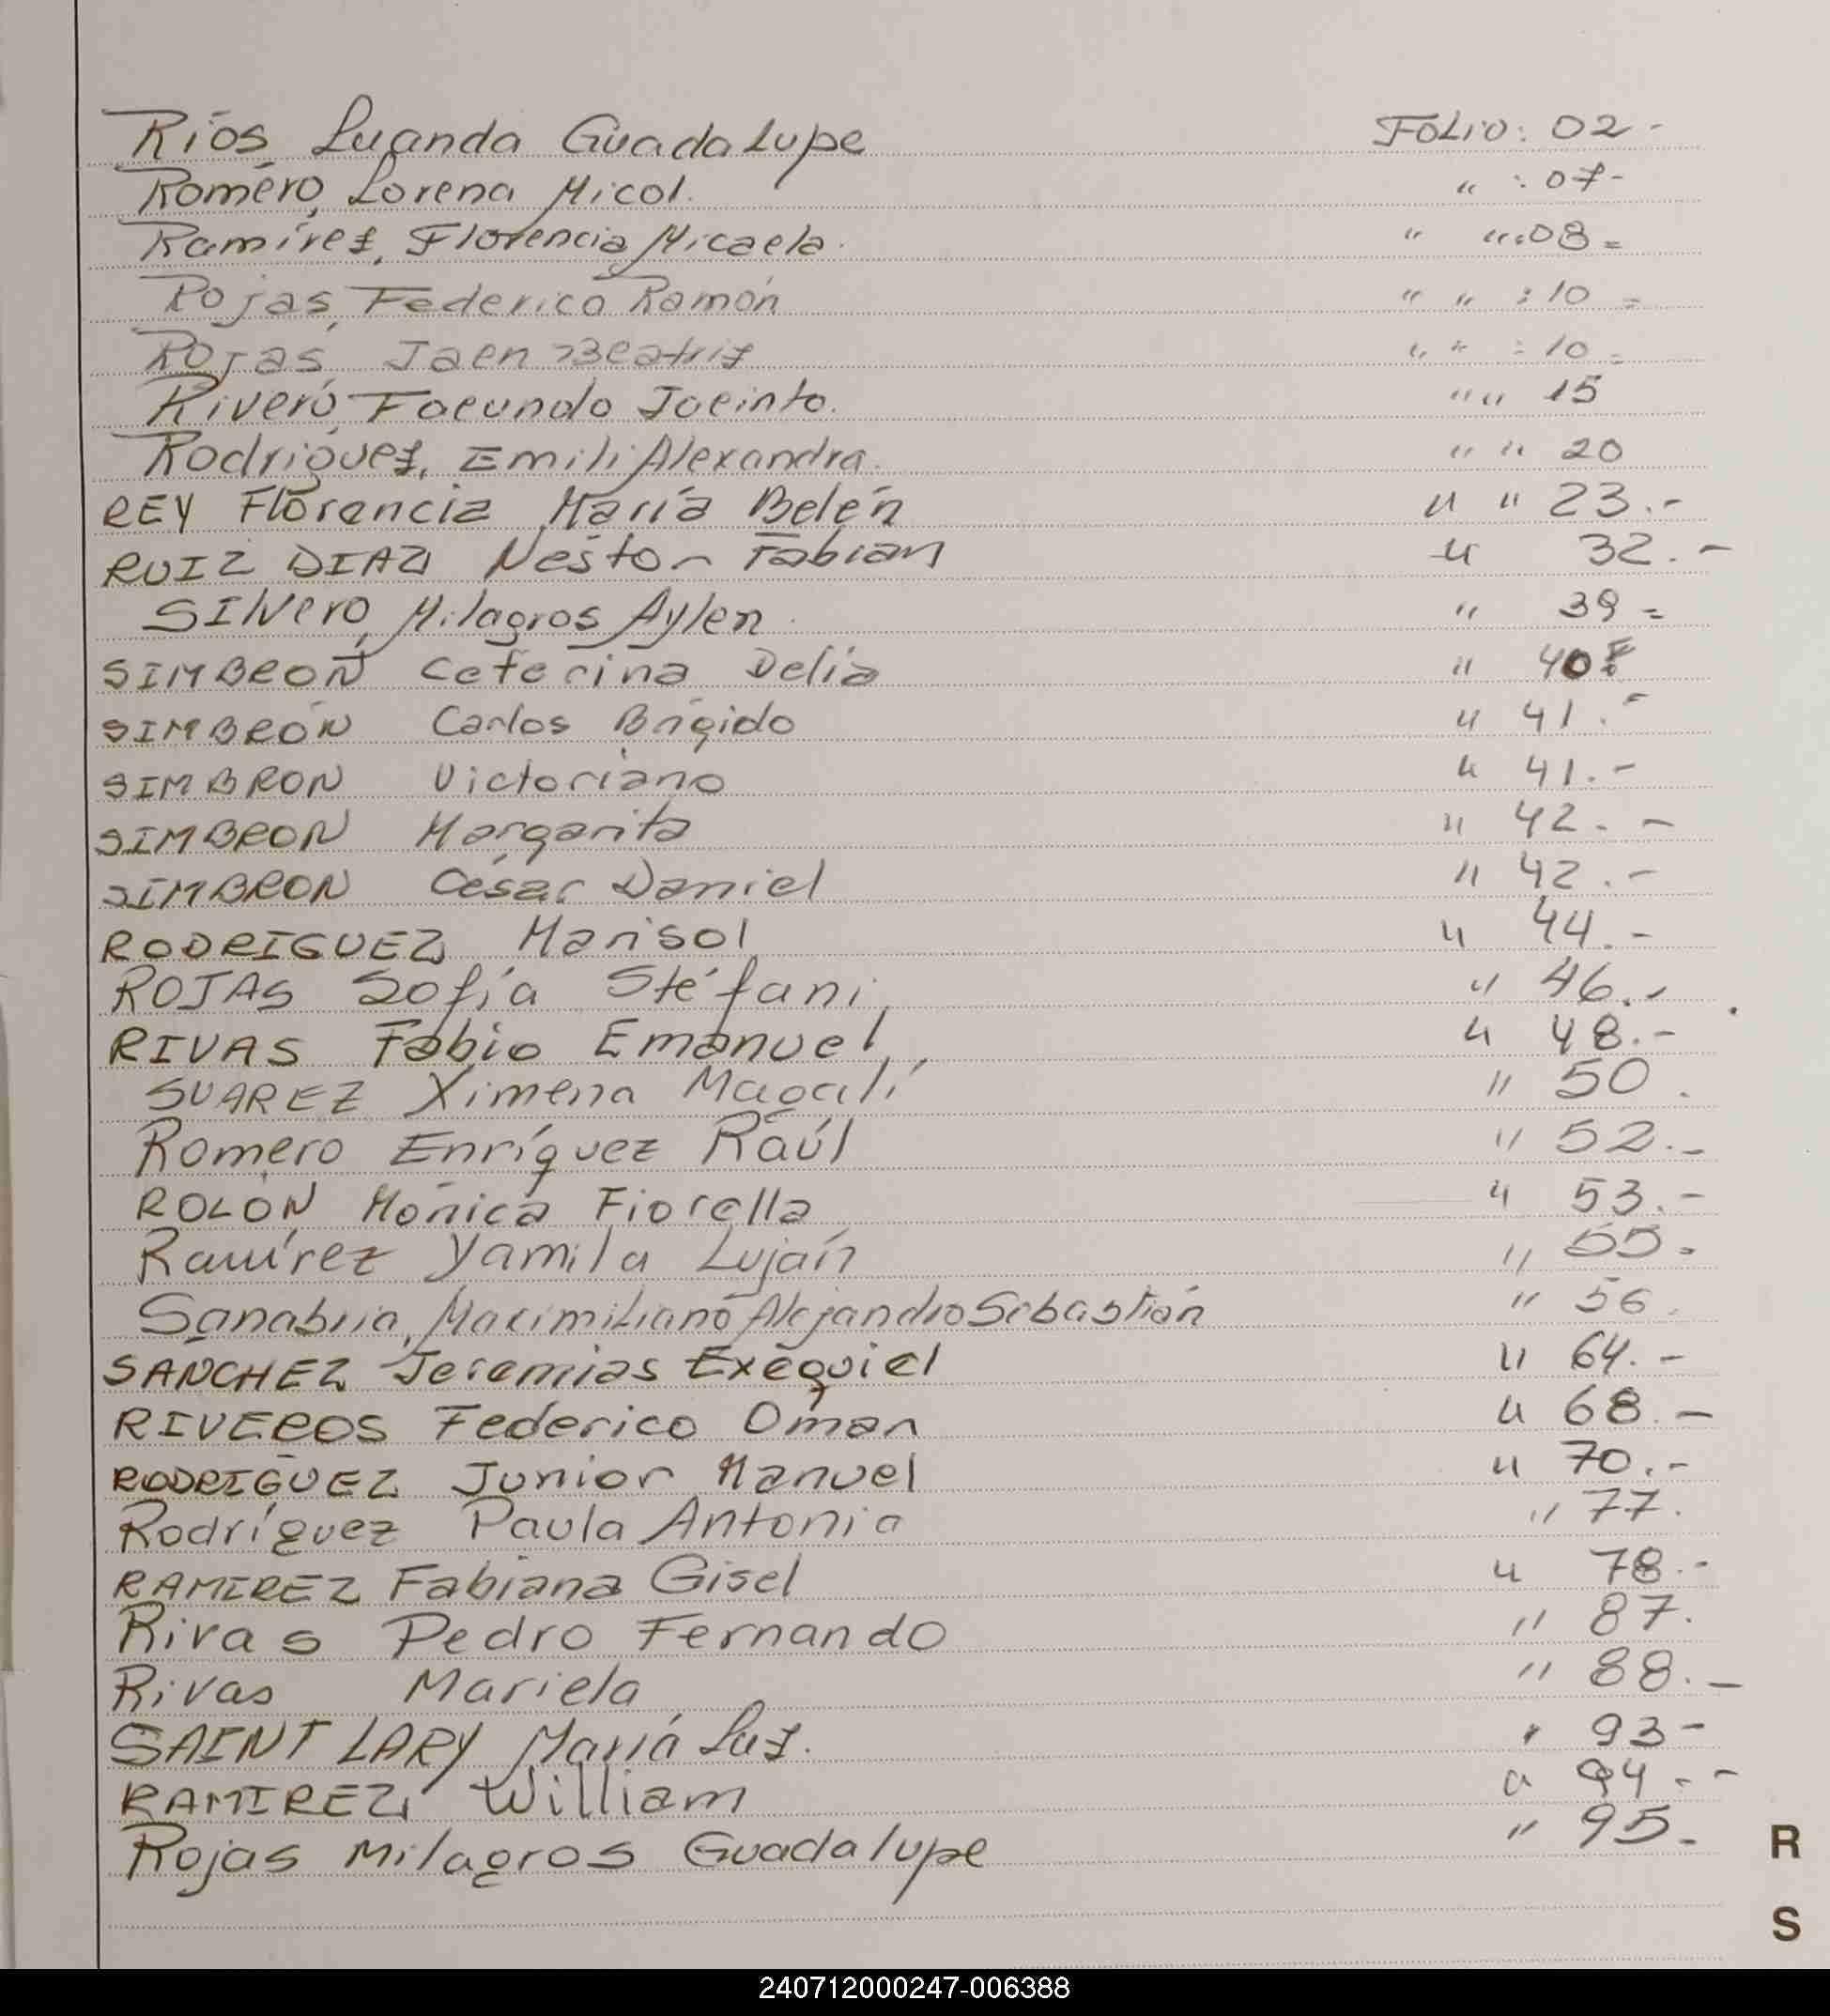 Ríos, Luanda Guadalupe Folio: 02-
Romero, Lorena Micol. " : 07-
Ramírez, Florencia Micaela. " ":08=
Rojas, Federico Ramón " " :10=
Rojas, Jaen Beatriz " " :10=
Rivero, Facundo Jacinto. " " 15
Rodriguez, Emili Alexandra. " " 20
REY Florencia María Belén " " 23.-
RUIZ DIAZ Nestor Fabian " 32.-
SILVERO, Milagros Aylen " 39=
SIMBRON Ceferina Delia " 40
SIMBRÓN Carlos Brígido " 41.-
SIMBRON Victoriano " 41.-
SIMBRON Margarita " 42.-
SIMBRON César Daniel " 42.-
RODRIGUEZ Marisol " 44.-
ROJAS Sofía Stéfani " 46.-
RIVAS Fabio Emanuel " 48.-
SUAREZ Ximena Magalí " 50.
Romero Enríquez Raúl " 52.-
ROLÓN Mónica Fiorella " 53.-
Ramírez Yamila Luján " 55.
Sanabria, Maximiliano Alejandro Sebastián " 56.
SANCHEZ Jeremias Exequiel " 64.-
RIVEROS Federico Omar " 68.-
RODRIGUEZ Junior Manuel " 70.-
Rodríguez Paula Antonia " 77.
RAMIREZ Fabiana Gisel " 78.-
Rivas Pedro Fernando " 87.
Rivas Mariela " 88.-
SAINT LARY, María Luz. " 93-
RAMIREZ William " 94.-
Rojas Milagros Guadalupe " 95.-
R
S
240712000247-006388